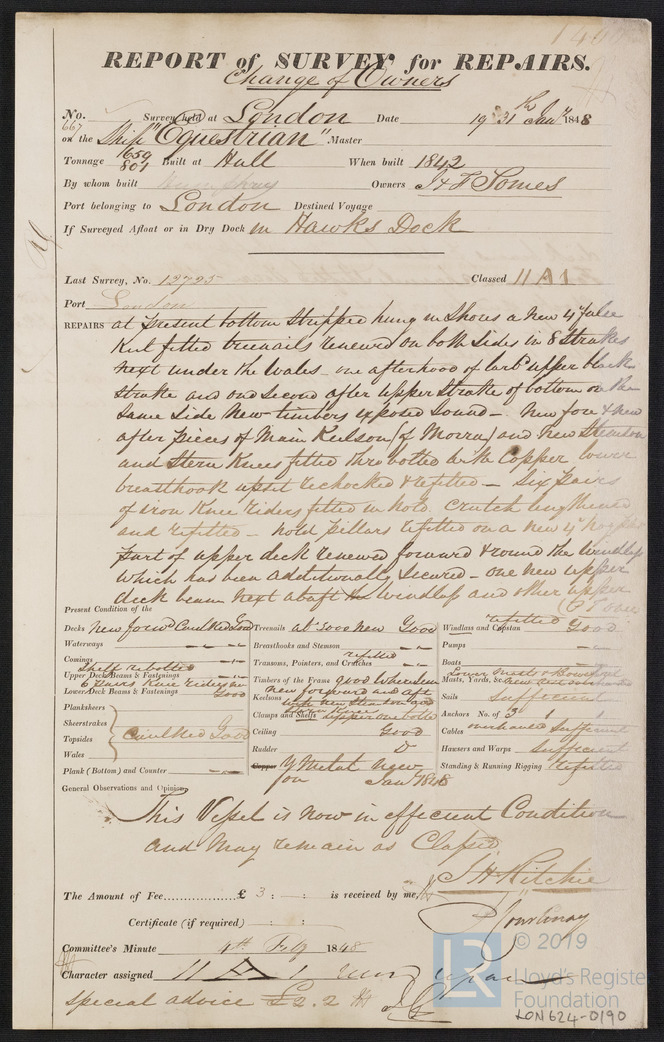 REPORT of SURVEY for REPAIRS.
Change of Owners
No. 667 Survey held at London Date 19 & 31st Jany 1848
on the Ship "Equestrian" Master
Tonnage 659 801 Built at Hull When built 1842
By whom built Owners J & F Somes
Port belonging to London Destined Voyage
If Surveyed Afloat or in Dry Dock in Hawks Dock
Last Survey, No. 13725 Classed 11 A 1
Port London
REPAIRS at present bottom stripped hung in Shores a New 4" false
Keel fitted treenails renewed on both sides in 8 Strakes
next under the Wales – one afterhood of larbd upper black
Strake and one second after upper Strake of bottom on the
Same Side New – timbers exposed Sound – New fore & new
after pieces of Main Keelson (of Morra) and New Stemson
and Stern Knees fitted thro bolted with Copper lower
breasthook upset rechocked & refitted – Six pairs
of iron Knee riders fitted in hold. Crutch lengthened
and refitted – hold pillars refitted on a new 4"
part of upper deck renewed forward & round the Windlass
which has been additionally Secured – one new upper
deck beam next abaft the windlass and other upper
Present Condition of the (P T over
Decks New forwd Caulked Good
Waterways " "
Comings " "
Shelf rebolted
Upper Deck Beams & Fastenings " "
6 pairs Knee riders in
Lower Deck Beams & Fastenings Good
Planksheers
Sheerstrakes
Topsides Caulked Good
Wales
Plank (Bottom) and Counter " "
Treenails abt 3000 New Good
Breasthooks and Stemson " "
refitted
Transoms, Pointers, and Crutches " "
Timbers of the Frame good where seen
New forward and aft
Keelsons with new Stemson and
Stern Knee
Clamps and Shelfs upper one bolted
Ceiling Good
Rudder Do
Copper Y Metal New
on Jany 1848
refitted
Windlass and Capstan Good
Pumps " "
Boats " "
Lower Masts & Bowsprit
Masts, Yards, &c. New and
Sails Sufficient
Anchors No. of 3 1 1
Cables overhauled Sufficient
Hawsers and Warps Sufficient
Standing & Running Rigging refitted
General Observations and Opinion,
This Vessel is now in efficient Condition
and May remain as Classed
J H Ritchie
The Amount of Fee.................. £ 3 : - : is received by me,
Courtenay
Certificate (if required) : :
Committee's Minute 4th Feby 1848
Character assigned 11 A 1
special advice £2.2
© 2019
LR
Lloyd's Register
Foundation
LON624-0190